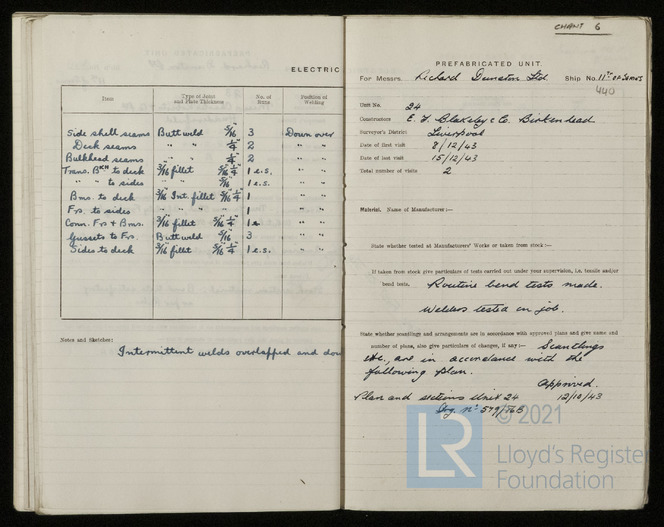 ELECTRIC
Item Type of Joint and Plate Thickness No. of Runs Position of Welding
Side shell seams Butt weld 5/16" 3 Down over
Deck seams " " 1/4" 2 " "
Bulkhead seams " " 1/4" 2 " "
Trans. Bkh to deck 3/16 fillet 5/16" 1/4" 1 e.s. " "
" " to sides " 5/16" 1 e.s. " "
Bms. to deck 3/16 Int. fillet 5/16" 1/4" 1 " "
Frs. to sides " " " " 1 " "
Conn. Frs & Bms. 3/16 fillet 5/16" 1/4" 1 " "
Gussets to Frs. Butt weld 5/16 3 " "
Sides to deck 3/16 fillet 5/16" 1/4" 1 e.s. " "
Notes and Sketches:
Intermittent welds overlapped and dou
CHANT 6
PREFABRICATED UNIT.
For Messrs. Richard Dunston Ltd. Ship No. 11th of Series
440
Unit No. 24
Constructors E. F. Blakeley & Co. Birkenhead
Surveyor's District Liverpool
Date of first visit 8/12/43
Date of last visit 15/12/43
Total number of visits 2
Material. Name of Manufacturer:—
State whether tested at Manufacturers' Works or taken from stock:—
If taken from stock give particulars of tests carried out under your supervision, i.e. tensile and/or
bend tests. Routine bend tests made.
Welders tested on job.
State whether scantlings and arrangements are in accordance with approved plans and give name and
number of plans, also give particulars of changes, if any:— Scantlings
etc., are in accordance with the
following plan.
Approved.
Plan and sections Unit 24 12/10/43
Drg. No 579/
© 2021
LR
Lloyd's Registe
Foundation